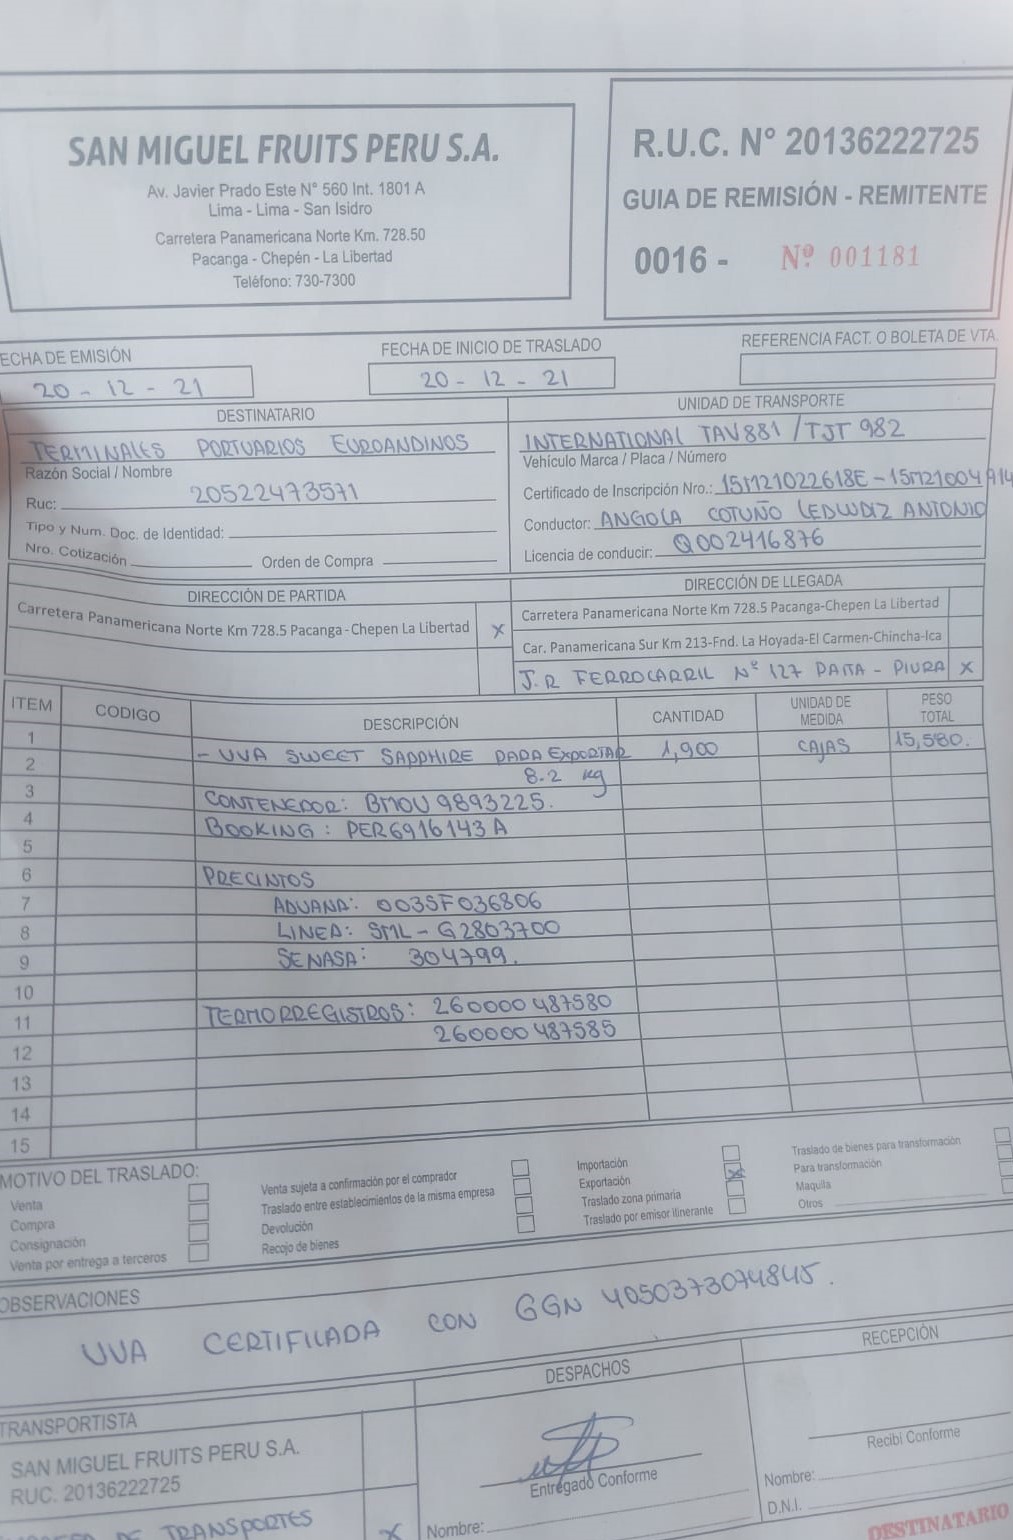 SAN MIGUEL FRUITS PERU S.A.
Av. Javier Prado Este N° 560 Int. 1801 A
Lima - Lima - San Isidro
Carretera Panamericana Norte Km. 728.50
Pacanga - Chepén - La Libertad
Teléfono: 730-7300
R.U.C. N° 20136222725
GUIA DE REMISIÓN - REMITENTE
0016 - Nº 001181
ECHA DE EMISIÓN
20 - 12 - 21
FECHA DE INICIO DE TRASLADO
20 - 12 - 21
REFERENCIA FACT. O BOLETA DE VTA.
DESTINATARIO
TERMINALES PORTUARIOS EUROANDINOS
Razón Social / Nombre
Ruc: 20522473571
Tipo y Num. Doc. de Identidad:
Nro. Cotización Orden de Compra
UNIDAD DE TRANSPORTE
INTERNATIONAL TAV881 / TJT 982
Vehículo Marca / Placa / Número
Certificado de Inscripción Nro.: 15M21022618E - 15M21004914
Conductor: ANGOLA COTUÑO LEDWDIZ ANTONIO
Licencia de conducir: Q002416876
DIRECCIÓN DE PARTIDA
Carretera Panamericana Norte Km 728.5 Pacanga - Chepen La Libertad X
DIRECCIÓN DE LLEGADA
Carretera Panamericana Norte Km 728.5 Pacanga-Chepen La Libertad
Car. Panamericana Sur Km 213-Fnd. La Hoyada-El Carmen-Chincha-Ica
J.R FERROCARRIL Nº 127 PAITA - PIURA X
ITEM CODIGO DESCRIPCIÓN CANTIDAD UNIDAD DE MEDIDA PESO TOTAL
1 - UVA SWEET SAPPHIRE PARA EXPORTAR 1,900 CAJAS 15,580.
2 8.2 kg
3 CONTENEDOR: BMOU 9893225.
4 BOOKING : PER6916143A
5
6 PRECINTOS
7 ADUANA: 0035F036806
8 LINEA: SML - G2803700
9 SENASA: 304799.
10
11 TERMORREGISTROS: 260000487580
12 260000487585
13
14
15
MOTIVO DEL TRASLADO:
Venta
Compra
Consignación
Venta por entrega a terceros
Venta sujeta a confirmación por el comprador
Traslado entre establecimientos de la misma empresa
Devolución
Recojo de bienes
Importación
Exportación X
Traslado zona primaria
Traslado por emisor itinerante
Traslado de bienes para transformación
Para transformación
Maquila
Otros
OBSERVACIONES
UVA CERTIFICADA CON GGN 4050373074845.
TRANSPORTISTA
SAN MIGUEL FRUITS PERU S.A.
RUC. 20136222725
DE TRANSPORTES X
DESPACHOS
Entregado Conforme
Nombre:
RECEPCIÓN
Recibí Conforme
Nombre:
D.N.I.
DESTINATARIO